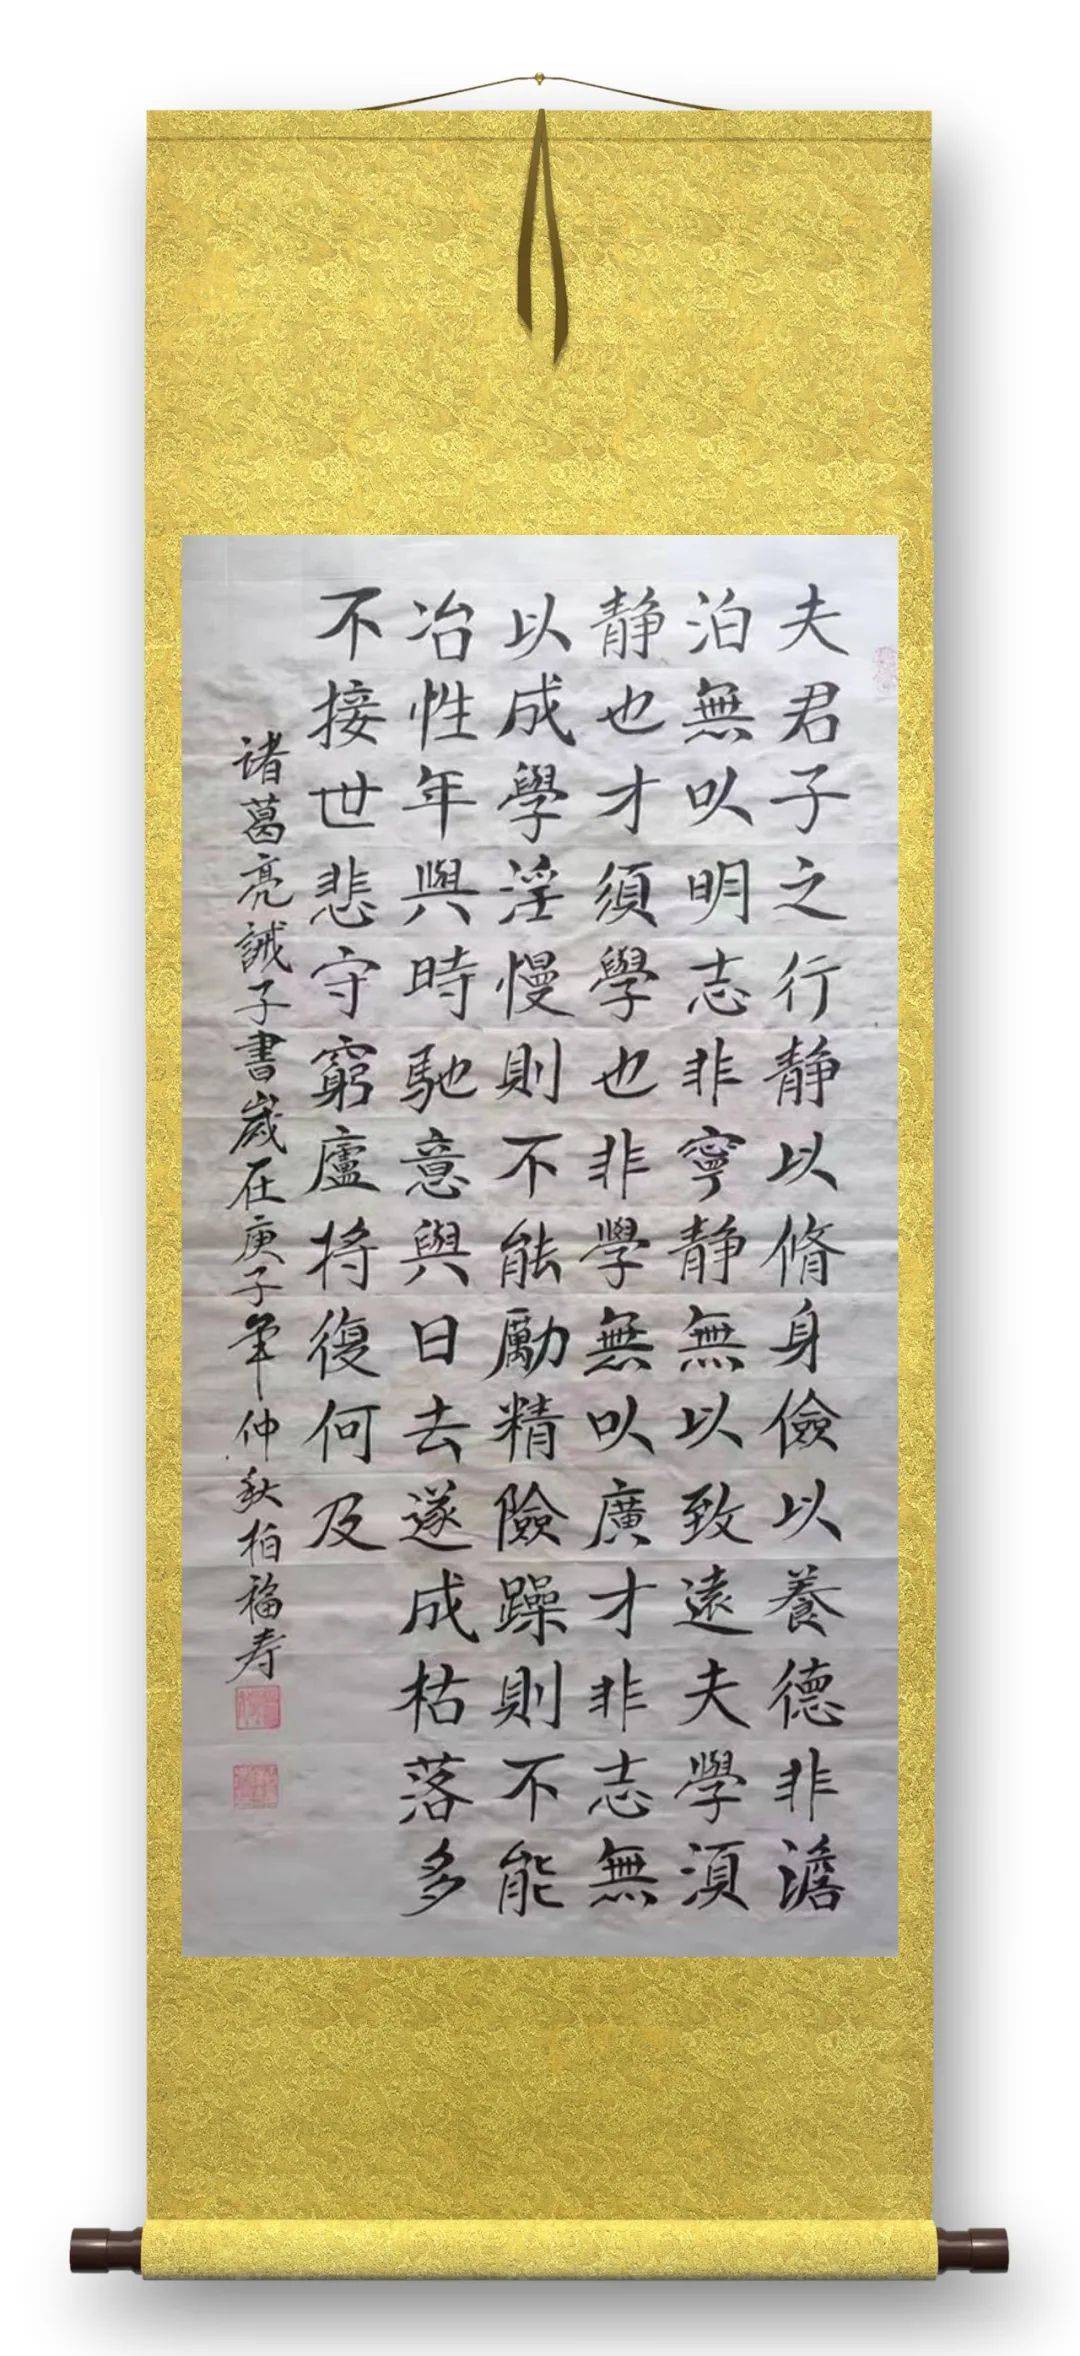 夫君子之行静以脩身儉以養德非澹
泊無以明志非寧静無以致遠夫學須
静也才須學也非學無以廣才非志無
以成學淫慢則不能勵精險躁則不能
冶性年與時馳意與日去遂成枯落多
不接世悲守窮廬将復何及
诸葛亮誡子書嵗在庚子年仲秋柏福寿